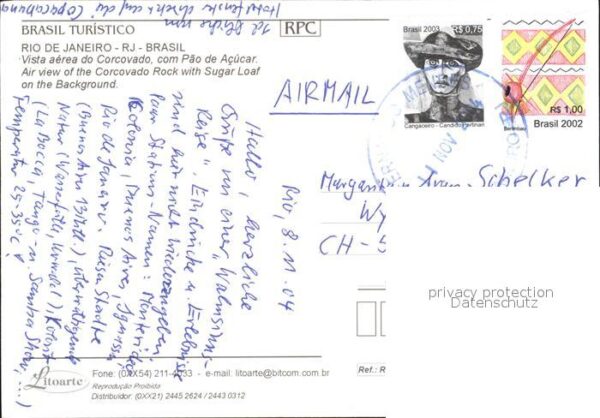 BRASIL TURÍSTICO
RPC
RIO DE JANEIRO - RJ - BRASIL
Vista aérea do Corcovado, com Pão de Açúcar.
Air view of the Corcovado Rock with Sugar Loaf
on the Background.
Brasil 2003
R$ 0,75
Cangaceiro - Candido Portinari
R$ 1,00
Berimbau
Brasil 2002
AIRMAIL
Schelker
CH-
Rio, 8.11.04
Hallo, herzliche
Grüße von einer "Wahnsinns-
Reise". Eindrücke u. Erlebnisse
sind gar nicht wiederzugeben,
paar Stations-Namen: Montevideo
Buenos Aires, Iguassu
Rio de Janeiro. Riesen Städte
(Buenos Aires 13 Mill.), überwältigende
Natur (Wasserfälle,
(La Bocca, Tango- u. Samba Show, ...)
Temperatur 25-35°C!
Copacabana
privacy protection
Datenschutz
Litoarte
Fone: (0XX54) 211-4033 - e-mail: litoarte@bitcom.com.br
Reprodução Proibida
Distribuidor: (0XX21) 2445 2624 / 2443 0312
Ref.: R